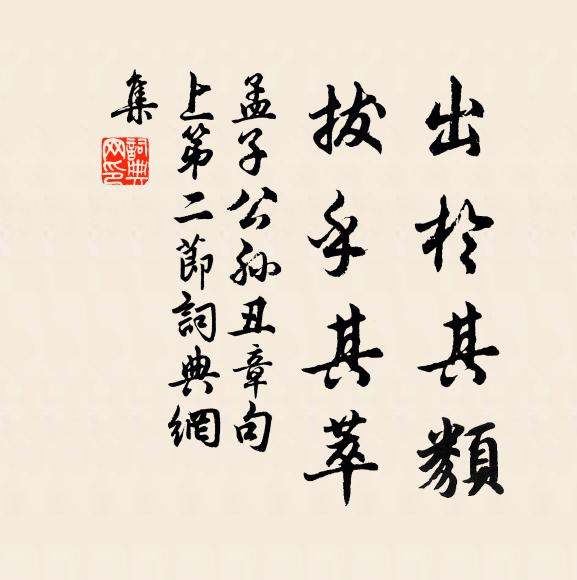 出於其類
拔乎其萃
孟子公孫丑章句
上第二節詞典網
集
詞典網印